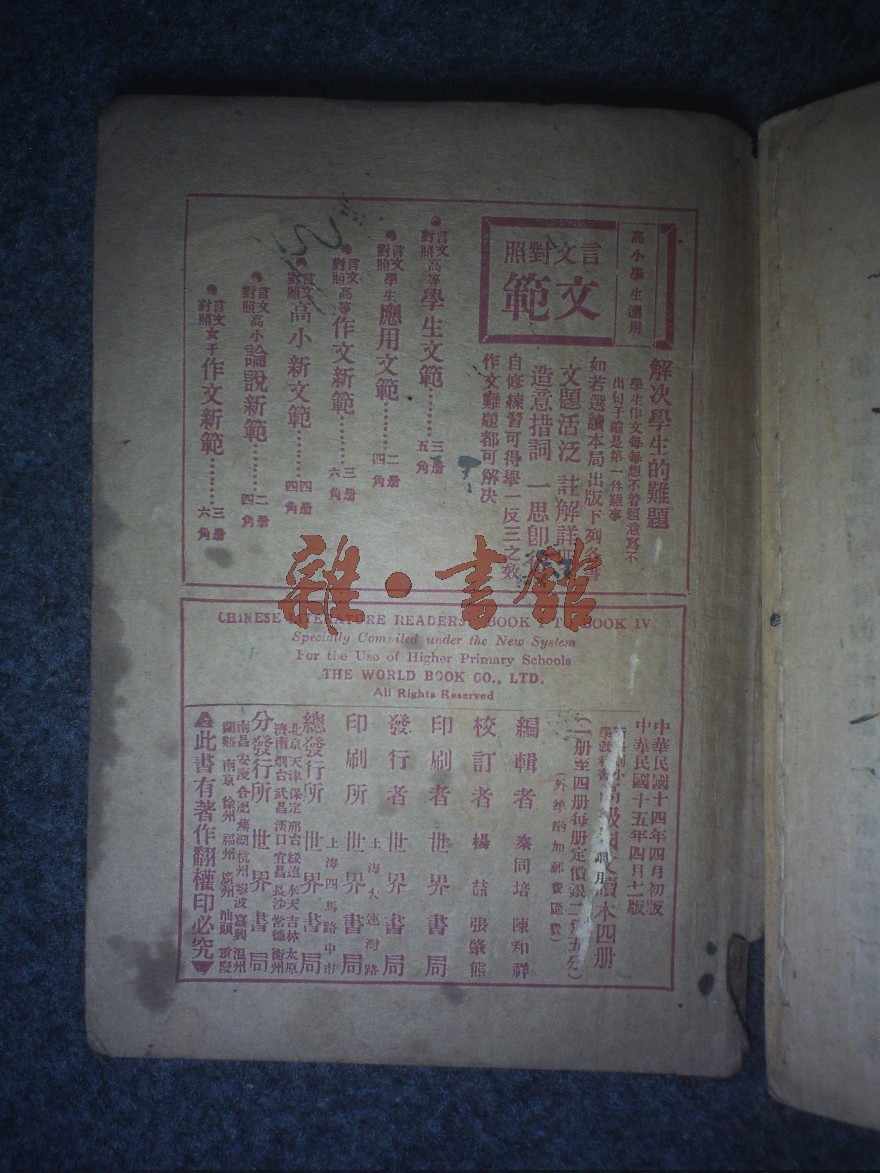 高小學生適用
言文對照
文範
解決學生的難題
學生作文每每想不着題意寫不
出句子確是第一件難事
如若選讀本局出版下列各書
文題活泛 註解詳明
造意措詞 一思卽得
自修練習可得舉一反三之效
作文難題都可解決
言文對照高等學生文範………三册五角
言文對照學生應用文範………二册四角
言文對照高等作文新範………三册六角
言文對照高小新文範………四册四角
言文對照高小論說新範………二册四角
言文對照女子作文新範………三册六角
雜·書館
CHINESE LITERATURE READERS BOOK I TO BOOK IV
Specially Compiled under the New System
For the Use of Higher Primary Schools
THE WORLD BOOK CO., LTD.
All Rights Reserved
中華民國十四年四月初版
中華民國十五年四月十二版
高級國文讀本四册
(一册至四册每册定價銀二角五分)
(外埠酌加郵費匯費)
編輯者 秦同培 陳和祥
校訂者 楊喆 張肇熊
印刷者 世界書局
發行者 世界書局
印刷所 上海大連灣路 世界書局
總發行所 上海四馬路中市 世界書局
分發行所 世界書局
北京 天津 保定 邢台 綏遠 奉天 吉林 太原
濟南 烟台 武昌 漢口 宜昌 長沙 常德 衡州
南昌 安慶 合肥 蕪湖 杭州 寧波 嘉興 溫州
蘭谿 南京 徐州 福州 廣州 汕頭 重慶
此書有著作權翻印必究